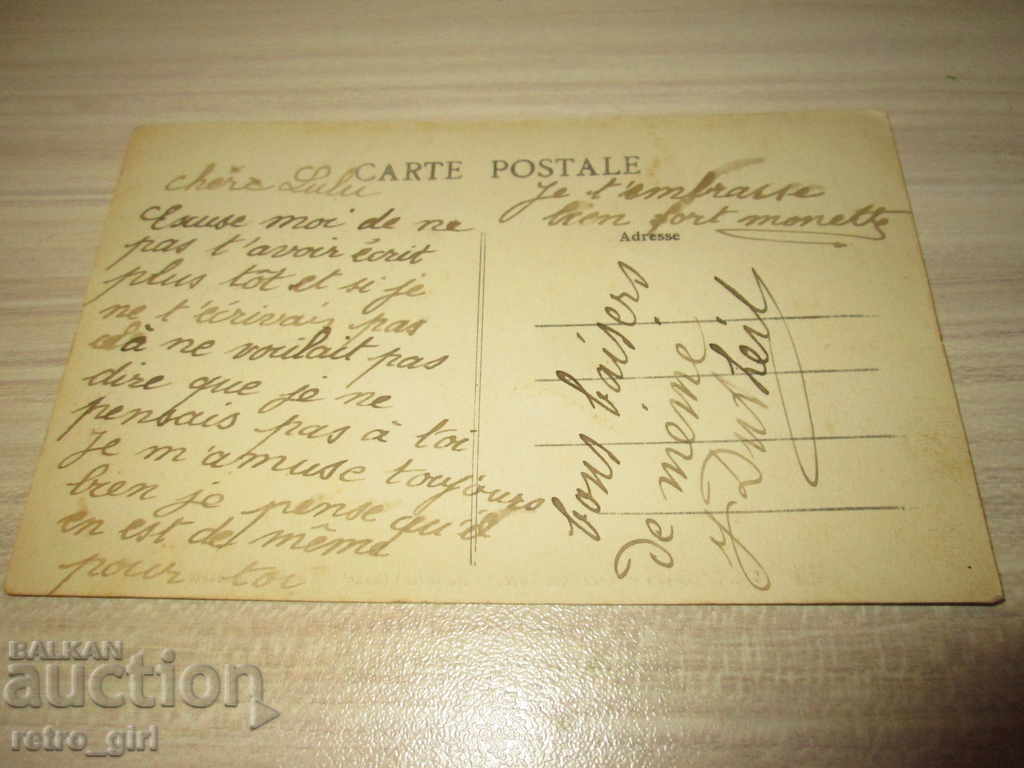 CARTE POSTALE
chère Lulu
Excuse moi de ne
pas t'avoir écrit
plus tôt et si je
ne t'écrivais pas
à ne voulait pas
dire que je ne
pensais pas à toi
Je m'amuse toujours
bien je pense qu'il
en est de même
pour toi
Je t'embrasse
bien fort monette
Adresse
bons baisers
de mémé
y Dutheil
BALKAN
auction
retro_girl